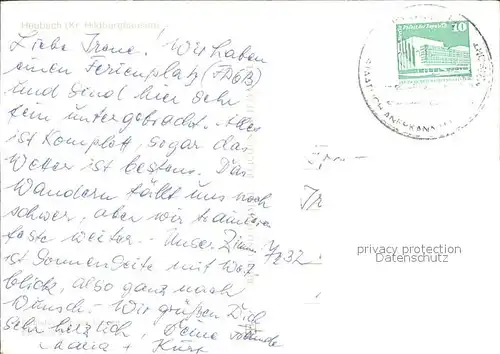 Heubach (Kr. Hildburghausen)
Liebe Irene! Wir haben
einen Ferienplatz (FDGB)
und sind hier sehr
fein untergebracht. Alles
ist komplett, sogar das
Wetter ist bestens. Das
Wandern fällt uns noch
schwer, aber wir trainieren
feste weiter. Unser Zimm
ist Sonnenseite mit
blick, also ganz nach
Wunsch. Wir grüßen Dich
sehr herzlich, Deine
+ Kurt
10
Frau
7232
privacy protection
Datenschutz